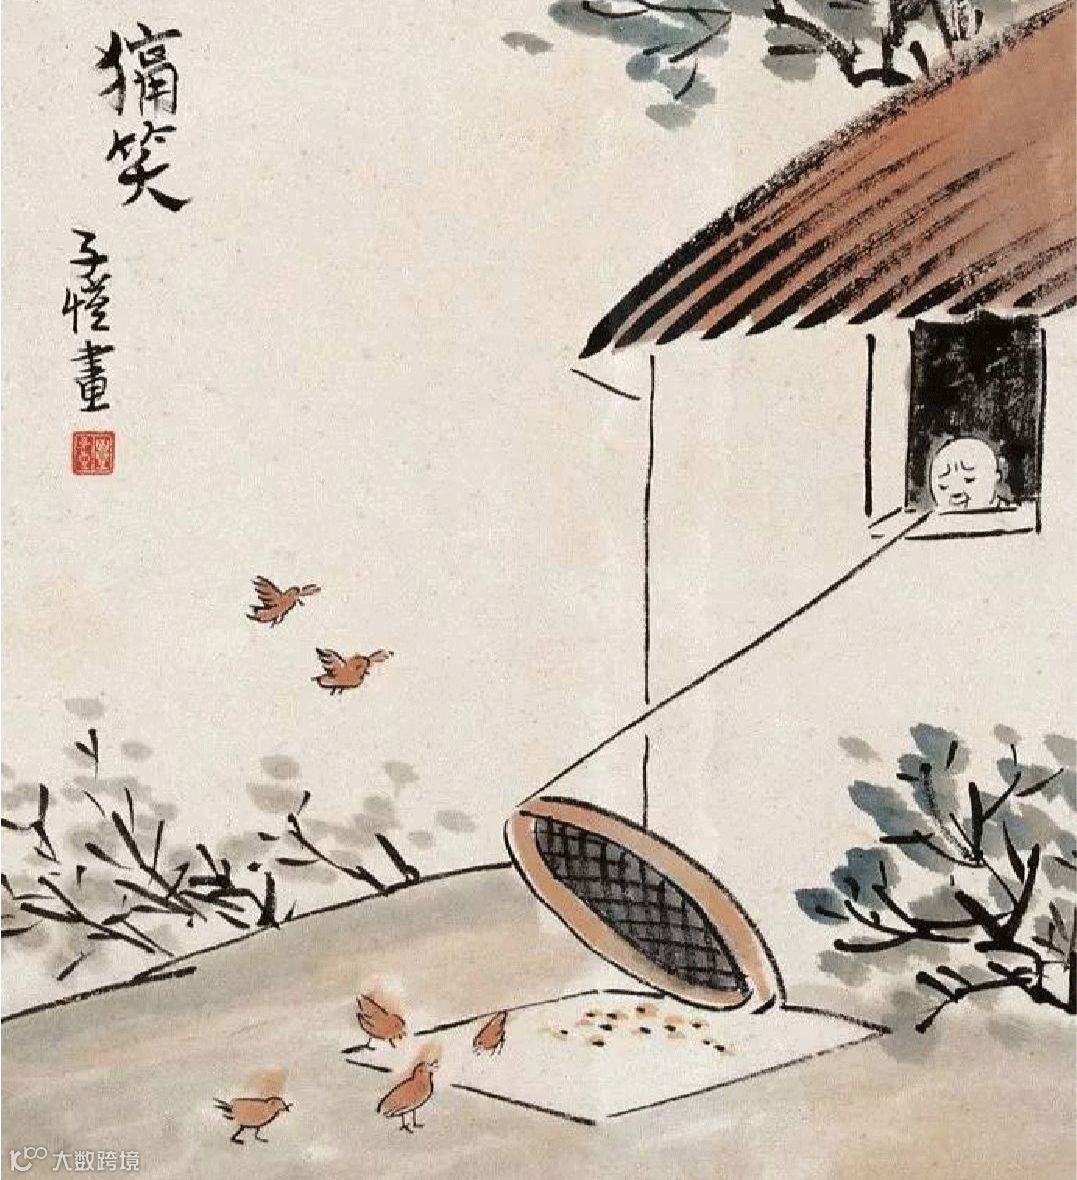 笑
子愷畫
大数跨境